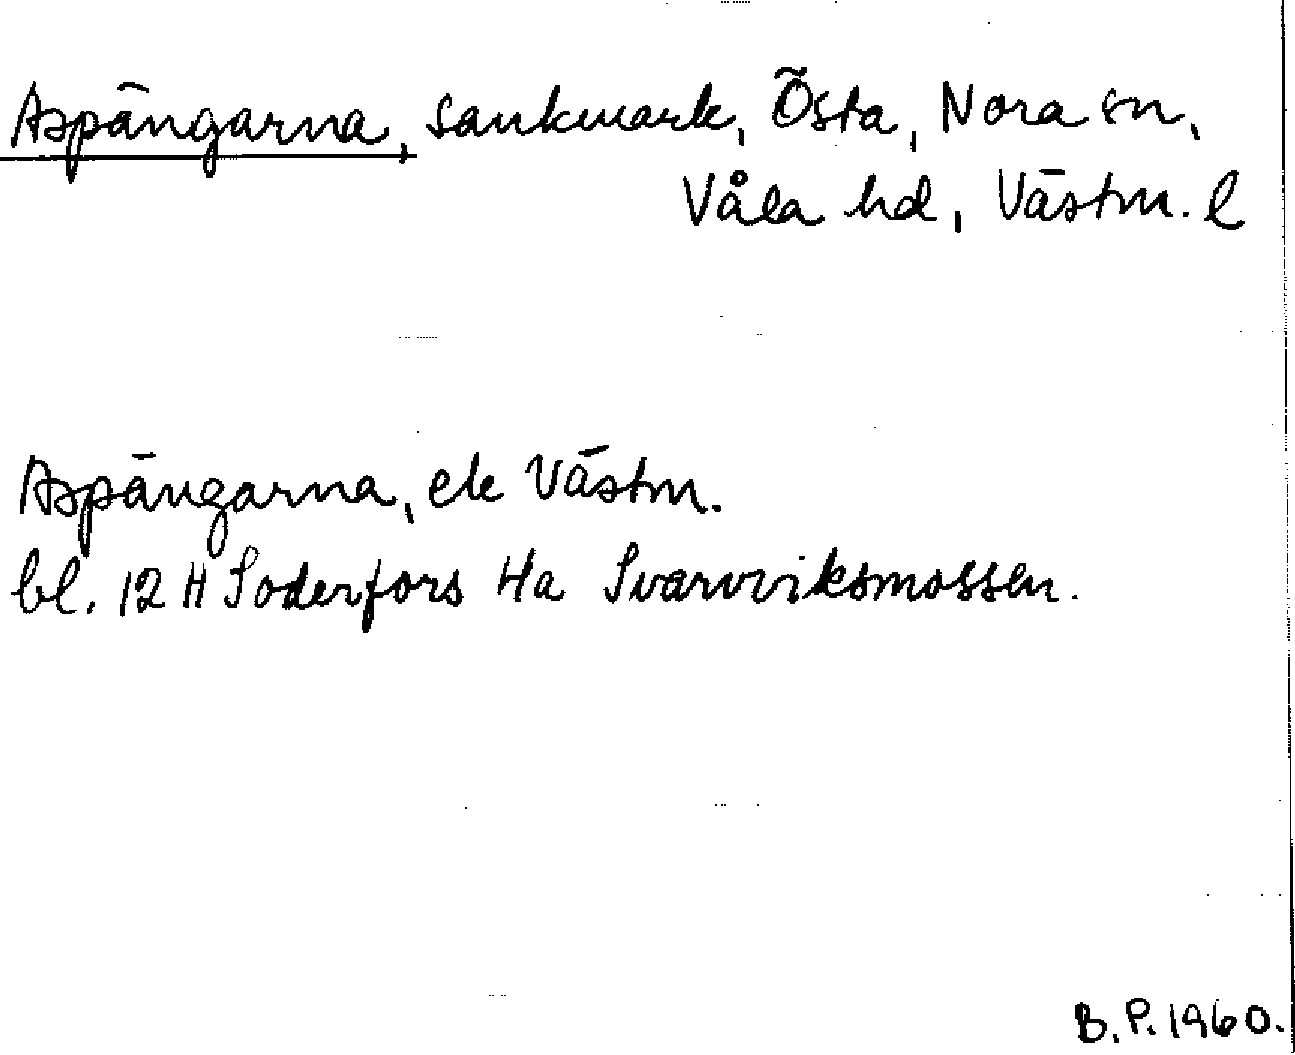 Aspängarna, sankmark, Östa, Nora sn,
Våla hd, Västm. l
Aspängarna, ek Västm.
bl. 12 H Söderfors 4a Svarvviksmossen.
B. P. 1960.